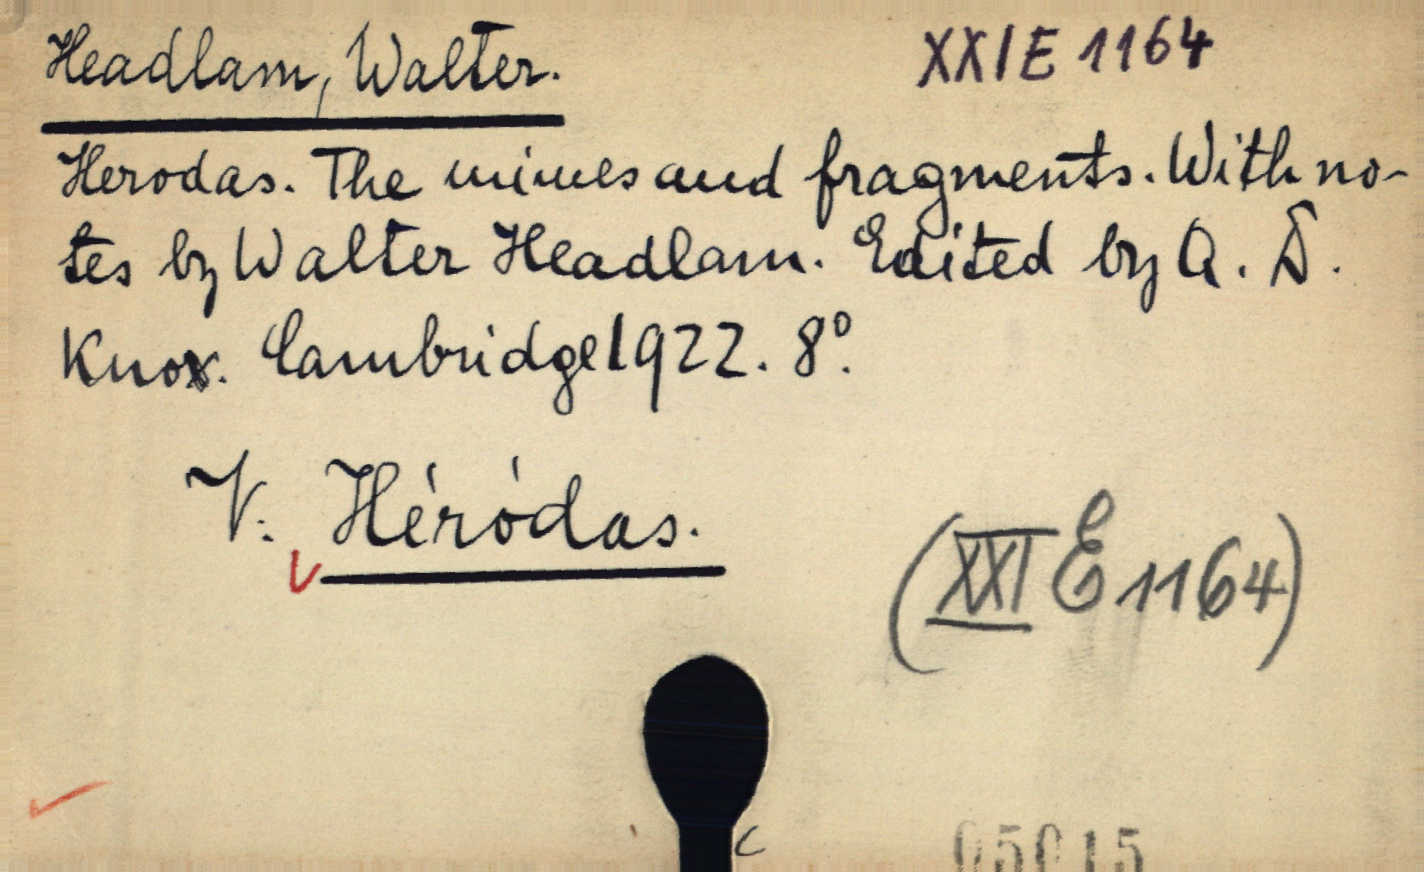 Headlam, Walter.
XXIE 1164
Herodas. The mimes and fragments. With no-
tes by Walter Headlam. Edited by A. D.
Knox. Cambridge 1922. 8°.
V. Héródas.
(XXI E 1164)